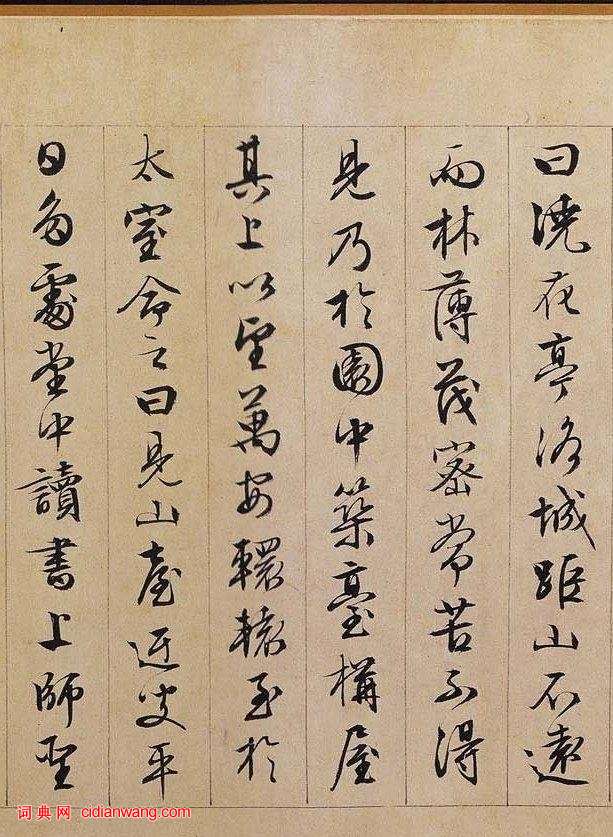 曰澆花亭洛城距山不遠
而林薄茂密常苦不得
見乃於園中築臺構屋
其上以望萬安轘轅至於
太室命之曰見山臺迂叟平
日多處堂中讀書上師聖
词典网 cidianwang.com